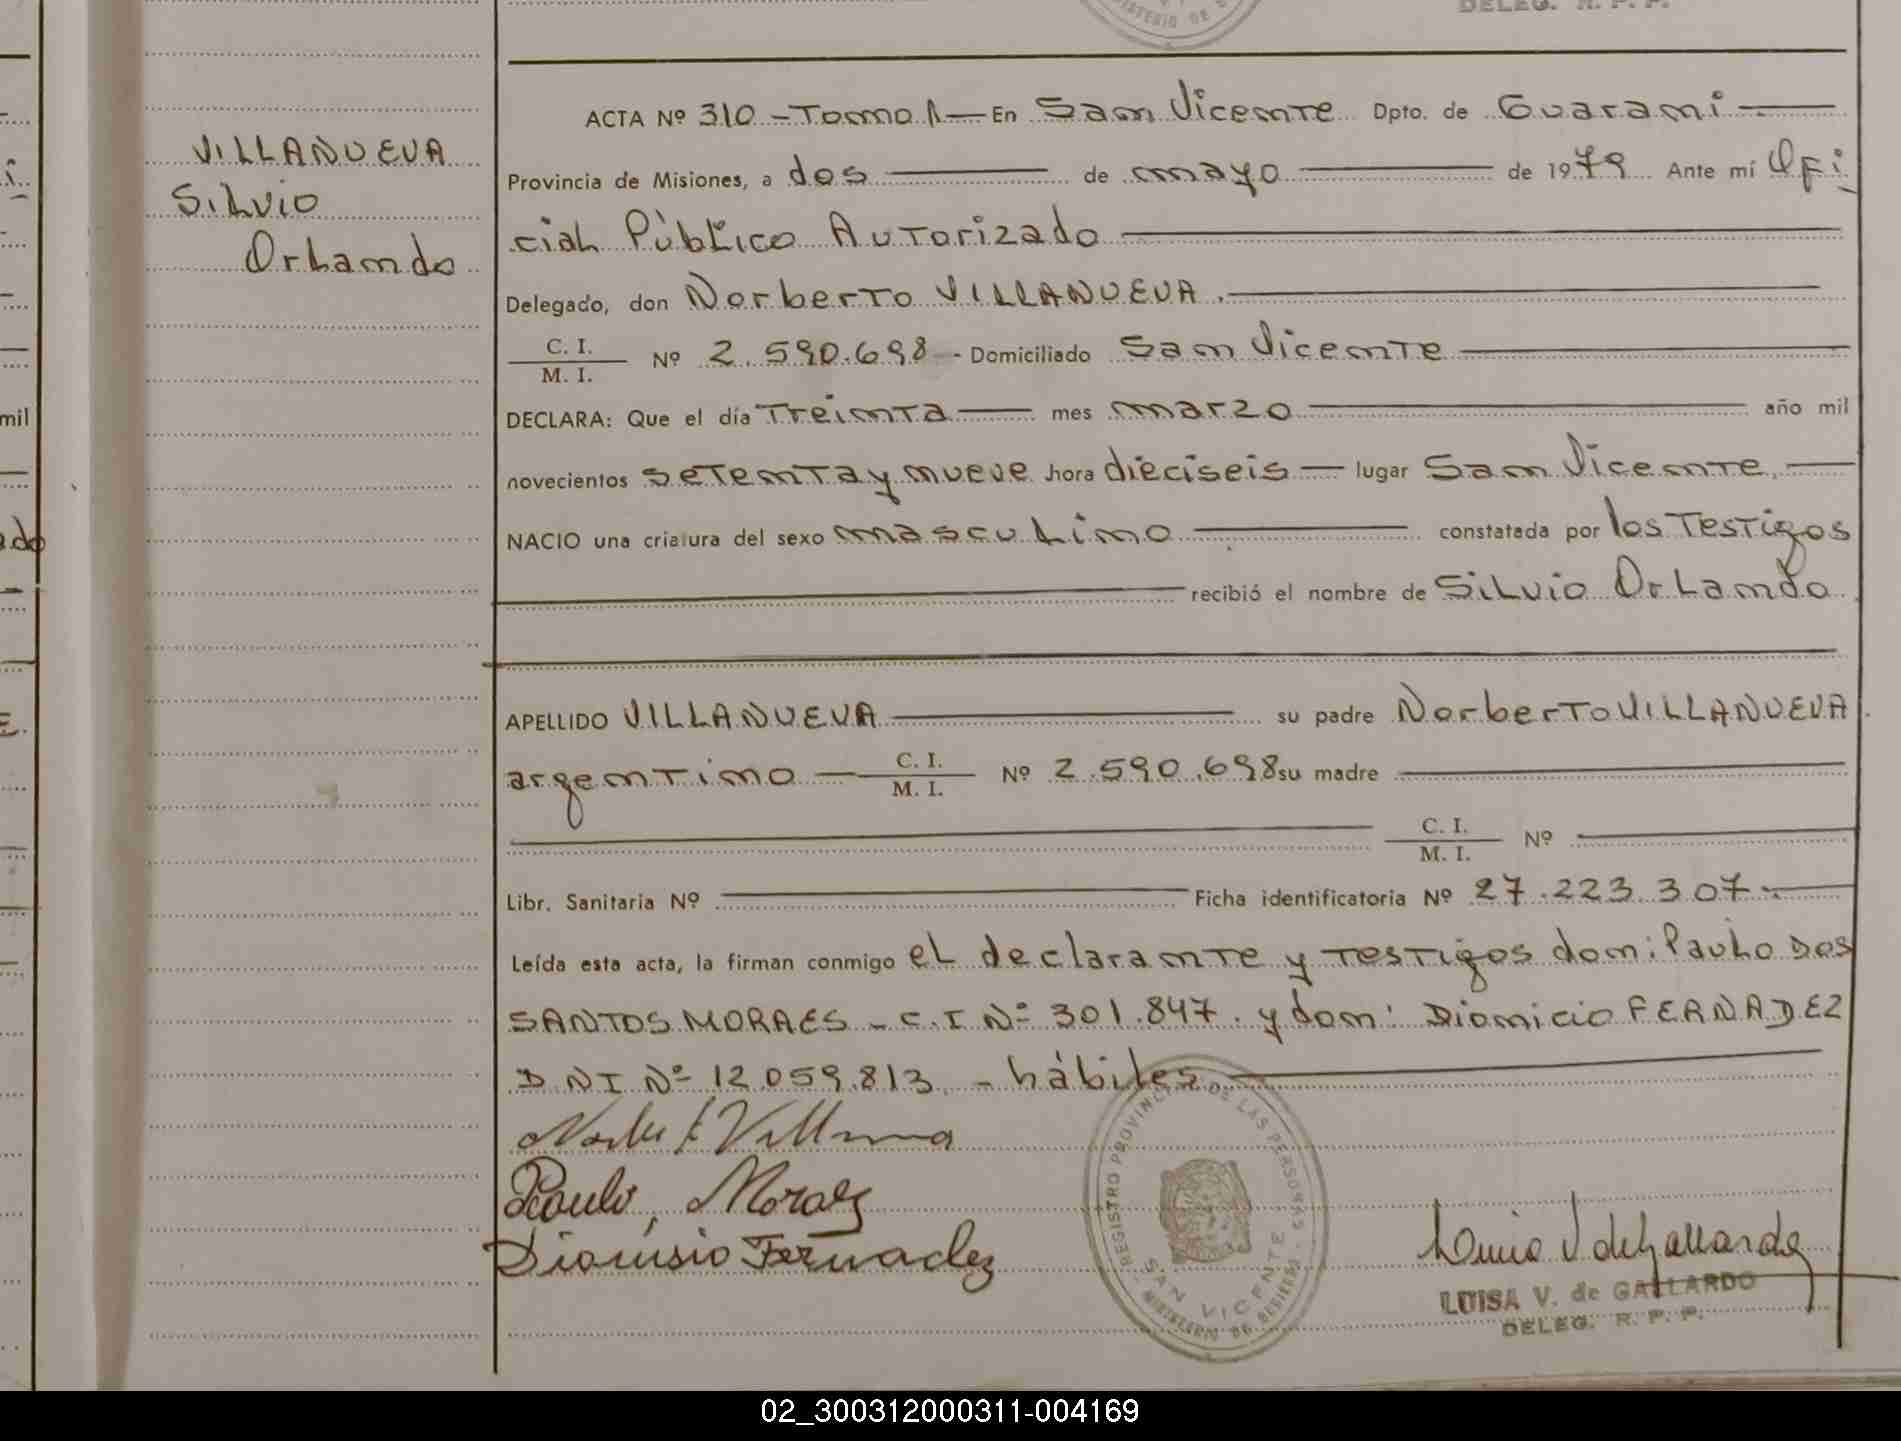 DELEG. R. P. P.
MINISTERIO DE
VILLANUEVA
Silvio
Orlando
ACTA Nº 310 - Tomo 1 — En San Vicente Dpto. de Guarani
Provincia de Misiones, a dos de mayo de 1979 Ante mí Ofi
cial Público Autorizado
Delegado, don Norberto VILLANUEVA.
C. I.
M. I. Nº 2.590.698 - Domiciliado San Vicente
DECLARA: Que el día Treinta mes marzo año mil
novecientos setenta y nueve hora dieciseis lugar San Vicente.
NACIO una criatura del sexo masculino constatada por los Testigos
recibió el nombre de Silvio Orlando
APELLIDO VILLANUEVA su padre Norberto VILLANUEVA
argentino C. I.
M. I. Nº 2.590.698 su madre
C. I.
M. I. Nº
Libr. Sanitaria Nº Ficha identificatoria Nº 27.223.307
Leída esta acta, la firman conmigo el declarante y testigos don: Paulo DOS
SANTOS MORAES - C.I Nº 301.847. y don: Dionicio FERNADEZ
DNI Nº 12059.813. - hábiles.
Paulo, Moraes
Dionisio Fernadez
REGISTRO PROVINCIAL DE LAS PERSONAS
SAN VICENTE
MINISTERIO DE
LUISA V. de GALLARDO
DELEG. R. P. P.
mil
ado
02_300312000311-004169